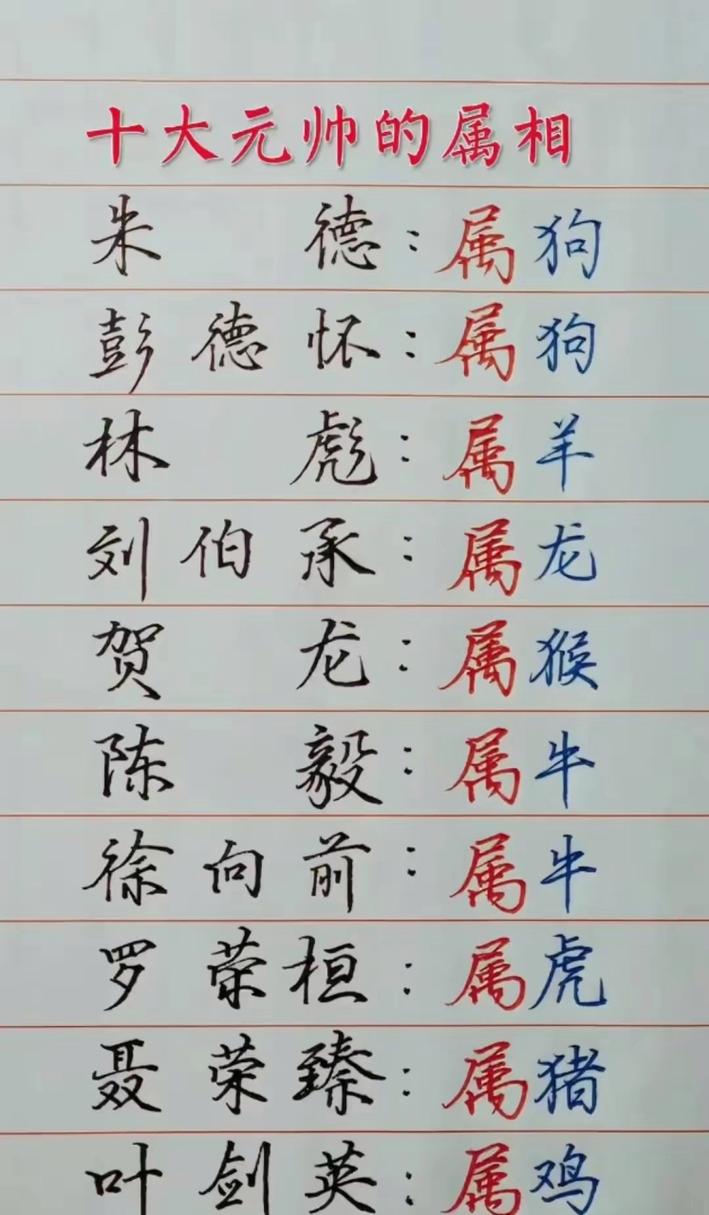 十大元帅的属相
朱德：属狗
彭德怀：属狗
林彪：属羊
刘伯承：属龙
贺龙：属猴
陈毅：属牛
徐向前：属牛
罗荣桓：属虎
聂荣臻：属猪
叶剑英：属鸡